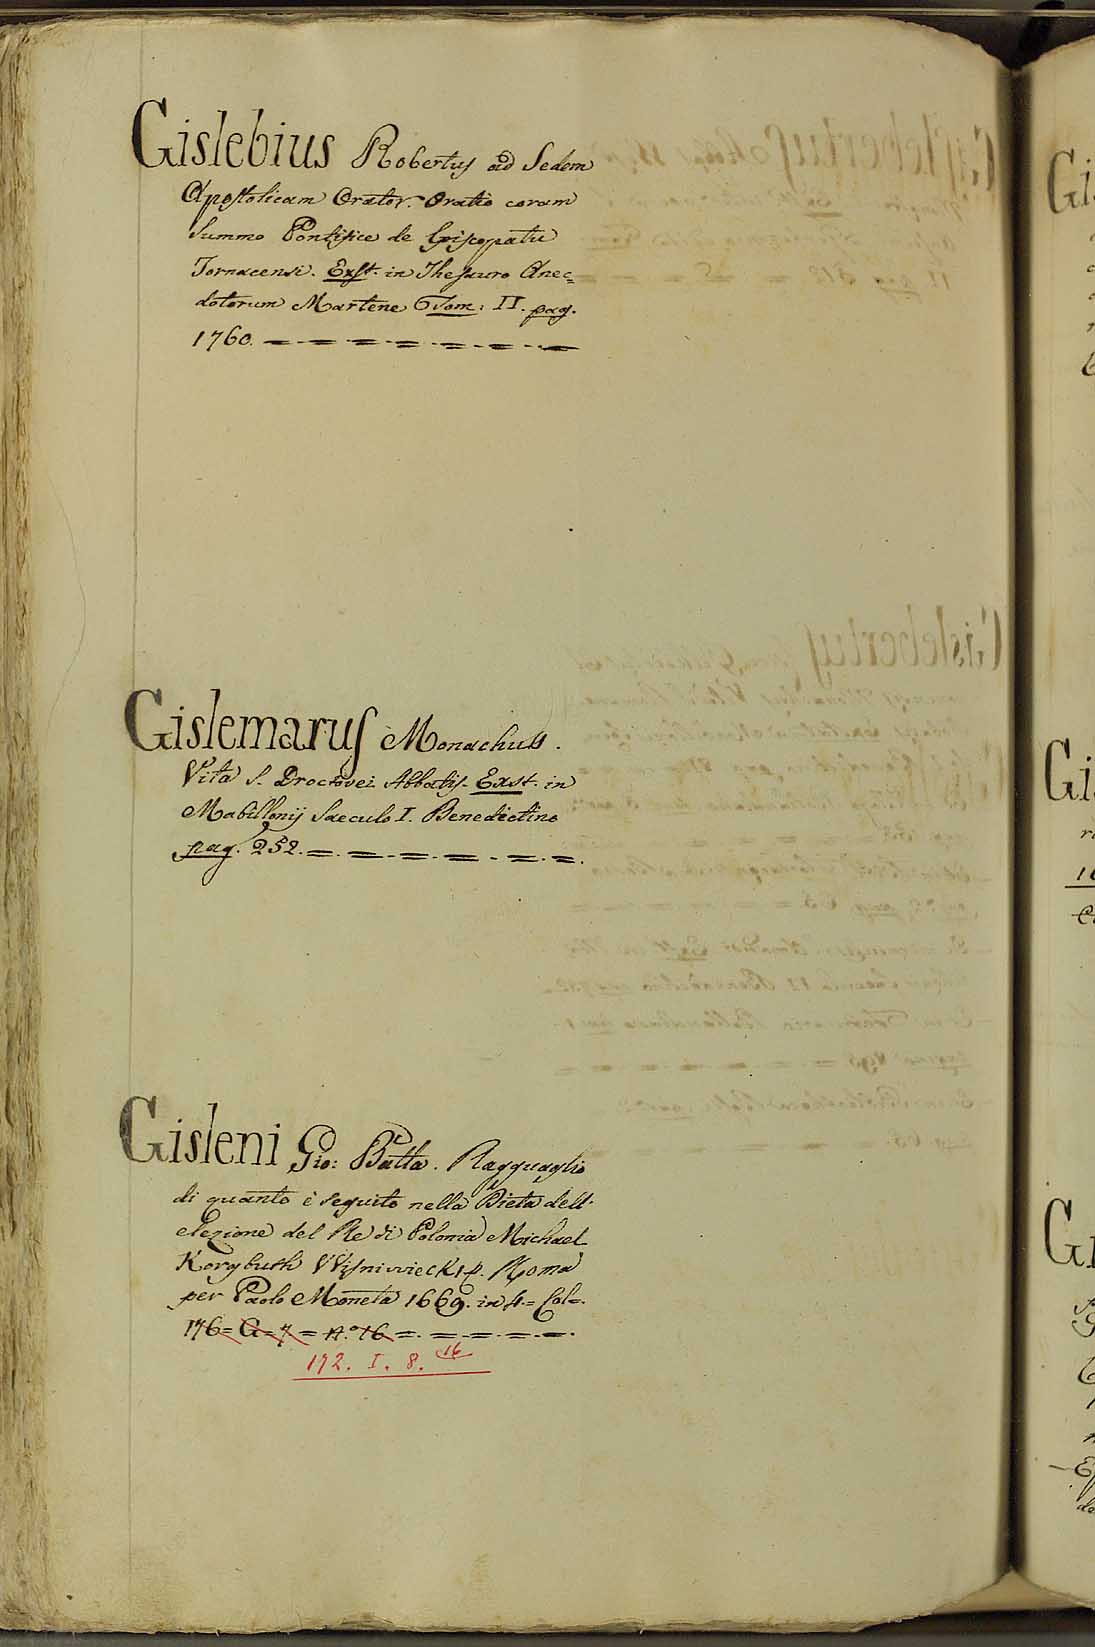 Gislebius Robertus ad Sedem
Apostolicam Orator. Oratio coram
Summo Pontifice de Episcopatu
Tornacensi. Exst. in Thesauro Anec=
dotorum Martene Tom: II. pag.
1760. = = = = = = =
Gislemarus Monachus.
Vita S. Droctovei Abbatis. Exst. in
Mabillonij Saeculo I. Benedictino
pag. 252. = = = = = =
Gisleni Gio: Batta. Ragguaglio
di quanto è seguito nella Dieta dell'
elezione del Re di Polonia Michael
Korybuth Wisniwiecki. Roma
per Paolo Moneta 1669. in 4.= Col=.
176= G= 7 = N.° 16 = = = = =
172. I. 8. 16